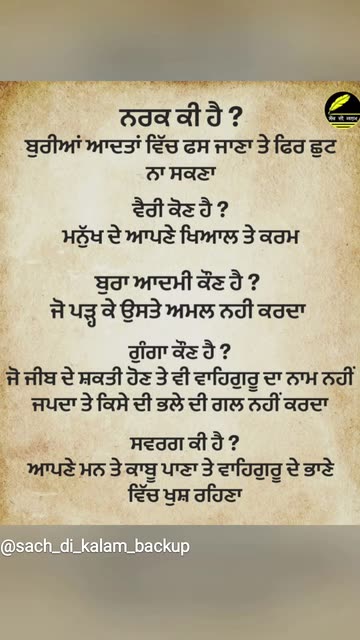 ਨਰਕ ਕੀ ਹੈ ?
ਬੁਰੀਆਂ ਆਦਤਾਂ ਵਿੱਚ ਫਸ ਜਾਣਾ ਤੇ ਫਿਰ ਛੁਟ
ਨਾ ਸਕਣਾ
ਵੈਰੀ ਕੋਣ ਹੈ ?
ਮਨੁੱਖ ਦੇ ਆਪਣੇ ਖਿਆਲ ਤੇ ਕਰਮ
ਬੁਰਾ ਆਦਮੀ ਕੌਣ ਹੈ ?
ਜੋ ਪੜ੍ਹ ਕੇ ਉਸਤੇ ਅਮਲ ਨਹੀ ਕਰਦਾ
ਗੁੰਗਾ ਕੌਣ ਹੈ ?
ਜੋ ਜੀਬ ਦੇ ਸ਼ਕਤੀ ਹੋਣ ਤੇ ਵੀ ਵਾਹਿਗੁਰੂ ਦਾ ਨਾਮ ਨਹੀਂ
ਜਪਦਾ ਤੇ ਕਿਸੇ ਦੀ ਭਲੇ ਦੀ ਗਲ ਨਹੀਂ ਕਰਦਾ
ਸਵਰਗ ਕੀ ਹੈ ?
ਆਪਣੇ ਮਨ ਤੇ ਕਾਬੂ ਪਾਣਾ ਤੇ ਵਾਹਿਗੁਰੂ ਦੇ ਭਾਣੇ
ਵਿੱਚ ਖੁਸ਼ ਰਹਿਣਾ
@sach_di_kalam_backup